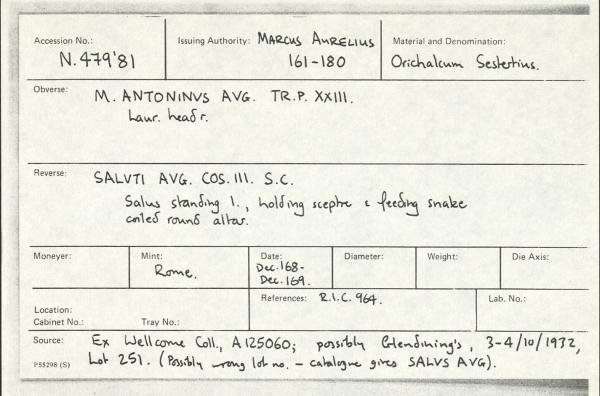 Accession No.: Issuing Authority: MARCUS AURELIUS Material and Denomination:
N.479'81 161-180 Orichalcum Sestertius.
Obverse: M. ANTONINVS AVG. TR.P. XXIII.
Laur. head r.
Reverse: SALVTI AVG. COS.III. S.C.
Salus standing l., holding sceptre & feeding snake
coiled round altar.
Moneyer: Mint: Date: Diameter: Weight: Die Axis:
Rome. Dec.168-
Dec.169.
References: R.I.C. 964. Lab. No.:
Location:
Cabinet No.: Tray No.:
Source: Ex Wellcome Coll., A125060; possibly Glendining's, 3-4/10/1932,
P55298 (S) Lot 251. (Possibly wrong lot no. - catalogue gives SALVS AVG).